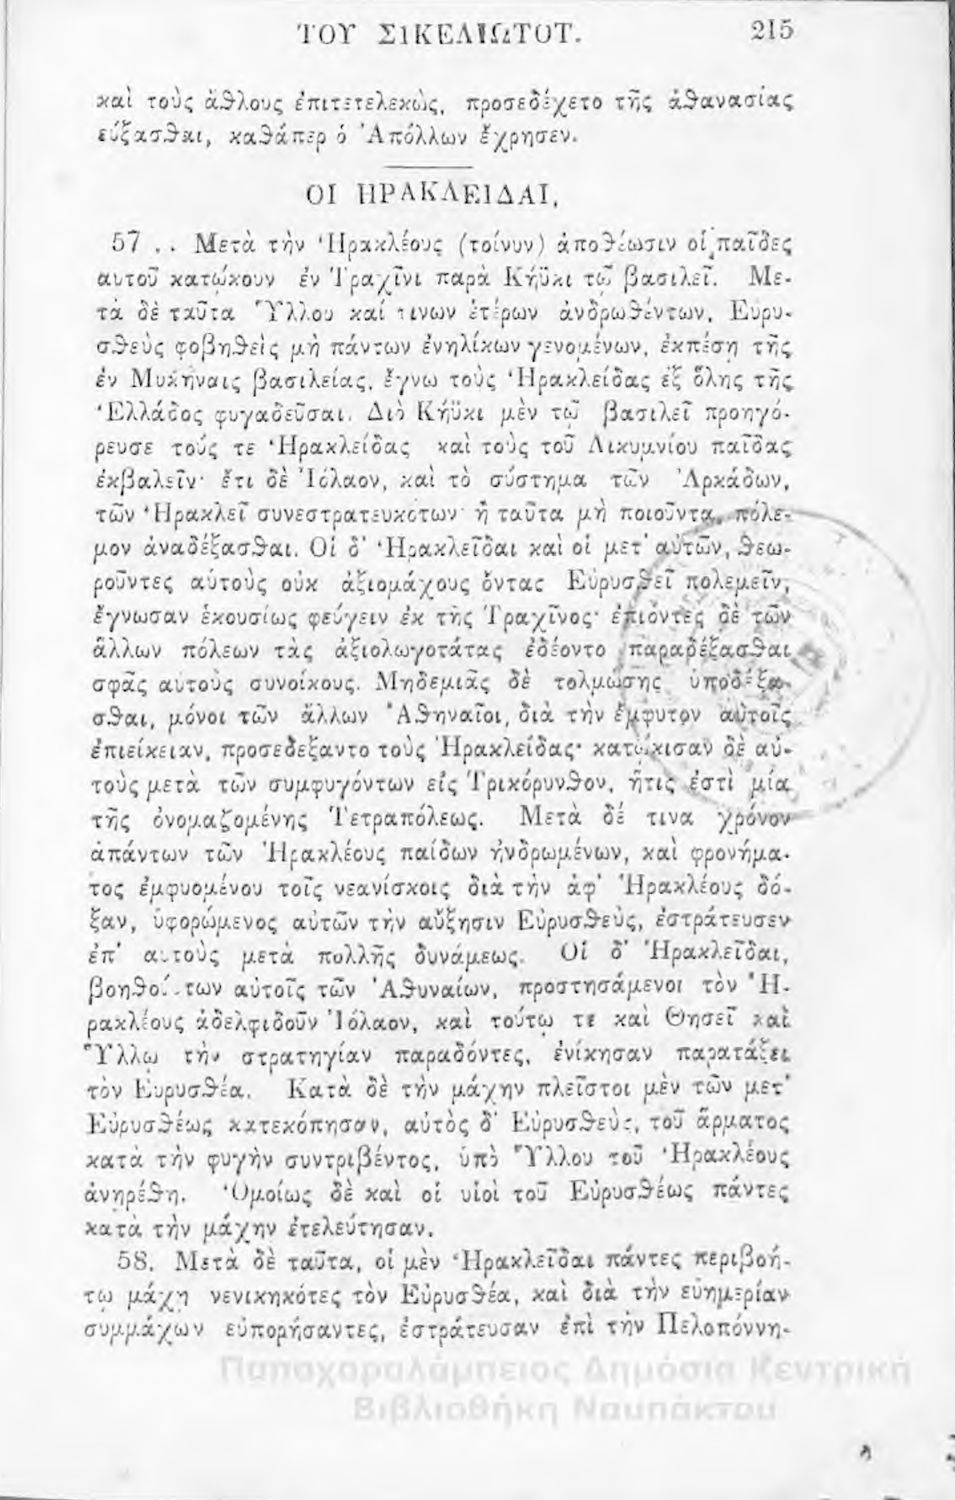 ΤΟΥ ΣΙΚΕΛΙΩΤΟΥ.
215
καὶ τοὺς ἄθλους ἐπιτετελεκὼς, προσεδέχετο τῆς ἀθανασίας
εύξασθαι, καθάπερ ὁ Ἀπόλλων ἔχρησεν.
ΟΙ ΗΡΑΚΛΕΙΔΑΙ,
57 .. Μετὰ τὴν Ἡρακλέους (τοίνυν) ἀποθέωσιν οἱ παῖδες
αυτοῦ κατῴκουν ἐν Τραχῖνι παρὰ Κήϋκι τῷ βασιλεῖ. Με-
τὰ δὲ ταῦτα Ὕλλου καί τινων ἑτέρων ἀνδρωθέντων, Ευρυ-
σθεὺς φοβηθεὶς μὴ πάντων ἐνηλίκων γενομένων, ἐκπέσῃ τῆς
ἐν Μυκήναις βασιλείας, ἔγνω τοὺς Ἡρακλείδας ἐξ ὅλης τῆς
Ἑλλάδος φυγαδεῦσαι. Διὸ Κήϋκι μὲν τῷ βασιλεῖ προηγό-
ρευσε τούς τε Ἡρακλείδας καὶ τοὺς τοῦ Λικυμνίου παῖδας
ἐκβαλεῖν· ἔτι δὲ Ἰόλαον, καὶ τὸ σύστημα τῶν Ἀρκάδων,
τῶν Ἡρακλεῖ συνεστρατευκότων· ἢ ταῦτα μὴ ποιοῦντα, πόλε-
μον ἀναδέξασθαι. Οἱ δ' Ἡρακλεῖδαι καὶ οἱ μετ' αὐτῶν, θεω-
ροῦντες αὑτοὺς οὐκ ἀξιομάχους ὄντας Εὐρυσθεῖ πολεμεῖν,
ἔγνωσαν ἑκουσίως φεύγειν ἐκ τῆς Τραχῖνος· ἐπιόντες δὲ τῶν
ἄλλων πόλεων τὰς ἀξιολωγοτάτας ἐδέοντο παραδέξασθαι
σφᾶς αυτοὺς συνοίκους. Μηδεμιᾶς δὲ τολμώσης ὑποδέξα-
σθαι, μόνοι τῶν ἄλλων Ἀθηναῖοι, διὰ τὴν ἔμφυτον αὐτοῖς
ἐπιείκειαν, προσεδεξαντο τοὺς Ἡρακλείδας· κατῴκισαν δὲ αὐ-
τοὺς μετὰ τῶν συμφυγόντων εἰς Τρικόρυνθον, ἥτις ἐστὶ μία
τῆς ὀνομαζομένης Τετραπόλεως. Μετὰ δέ τινα χρόνον
ἁπάντων τῶν Ἡρακλέους παίδων ἠνδρωμένων, καὶ φρονήμα-
τος ἐμφυομένου τοῖς νεανίσκοις διὰ τὴν ἀφ' Ἡρακλέους δό-
ξαν, ὑφορώμενος αὐτῶν τὴν αὔξησιν Εὐρυσθεὺς, ἐστράτευσεν
ἐπ' αυτοὺς μετὰ πολλῆς δυνάμεως. Οἱ δ' Ἡρακλεῖδαι,
βοηθούντων αὐτοῖς τῶν Ἀθυναίων, προστησάμενοι τὸν Ἡ-
ρακλέους ἀδελφιδοῦν Ἰόλαον, καὶ τούτῳ τε καὶ Θησεῖ καὶ
Ὕλλῳ τὴν στρατηγίαν παραδόντες, ἐνίκησαν παρατάξει
τὸν Ευρυσθέα. Κατὰ δὲ τὴν μάχην πλεῖστοι μὲν τῶν μετ'
Εὐρυσθέως κατεκόπησαν, αὐτὸς δ' Εὐρυσθεὺς, τοῦ ἅρματος
κατὰ τὴν φυγὴν συντριβέντος, ὑπὸ Ὕλλου τοῦ Ἡρακλέους
ἀνῃρέθη. Ὁμοίως δὲ καὶ οἱ υἱοὶ τοῦ Εὐρυσθέως πάντες
κατὰ τὴν μάχην ἐτελεύτησαν.
58. Μετὰ δὲ ταῦτα, οἱ μὲν Ἡρακλεῖδαι πάντες περιβοή-
τῳ μάχῃ νενικηκότες τὸν Εὐρυσθέα, καὶ διὰ τὴν εὐημερίαν
συμμάχων εὐπορήσαντες, ἐστράτευσαν ἐπὶ τὴν Πελοπόννη-
Παπαχαραλάμπειος Δημόσια Κεντρική
Βιβλιοθήκη Ναυπάκτου